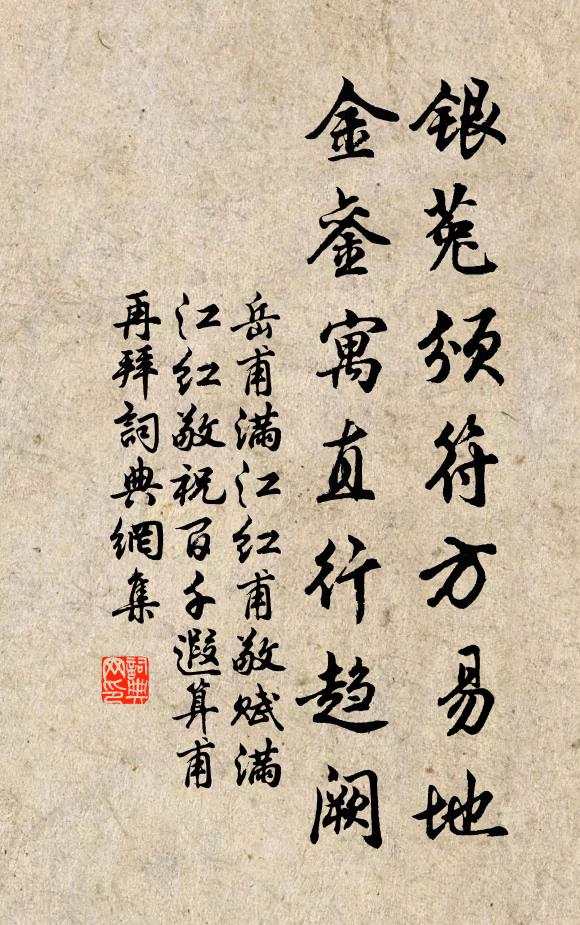 銀菟頒符方易地
金銮寓直行趋闕
岳甫满江红甫敬赋满
江红敬祝百千遐算甫
再拜詞典網集
詞典網印